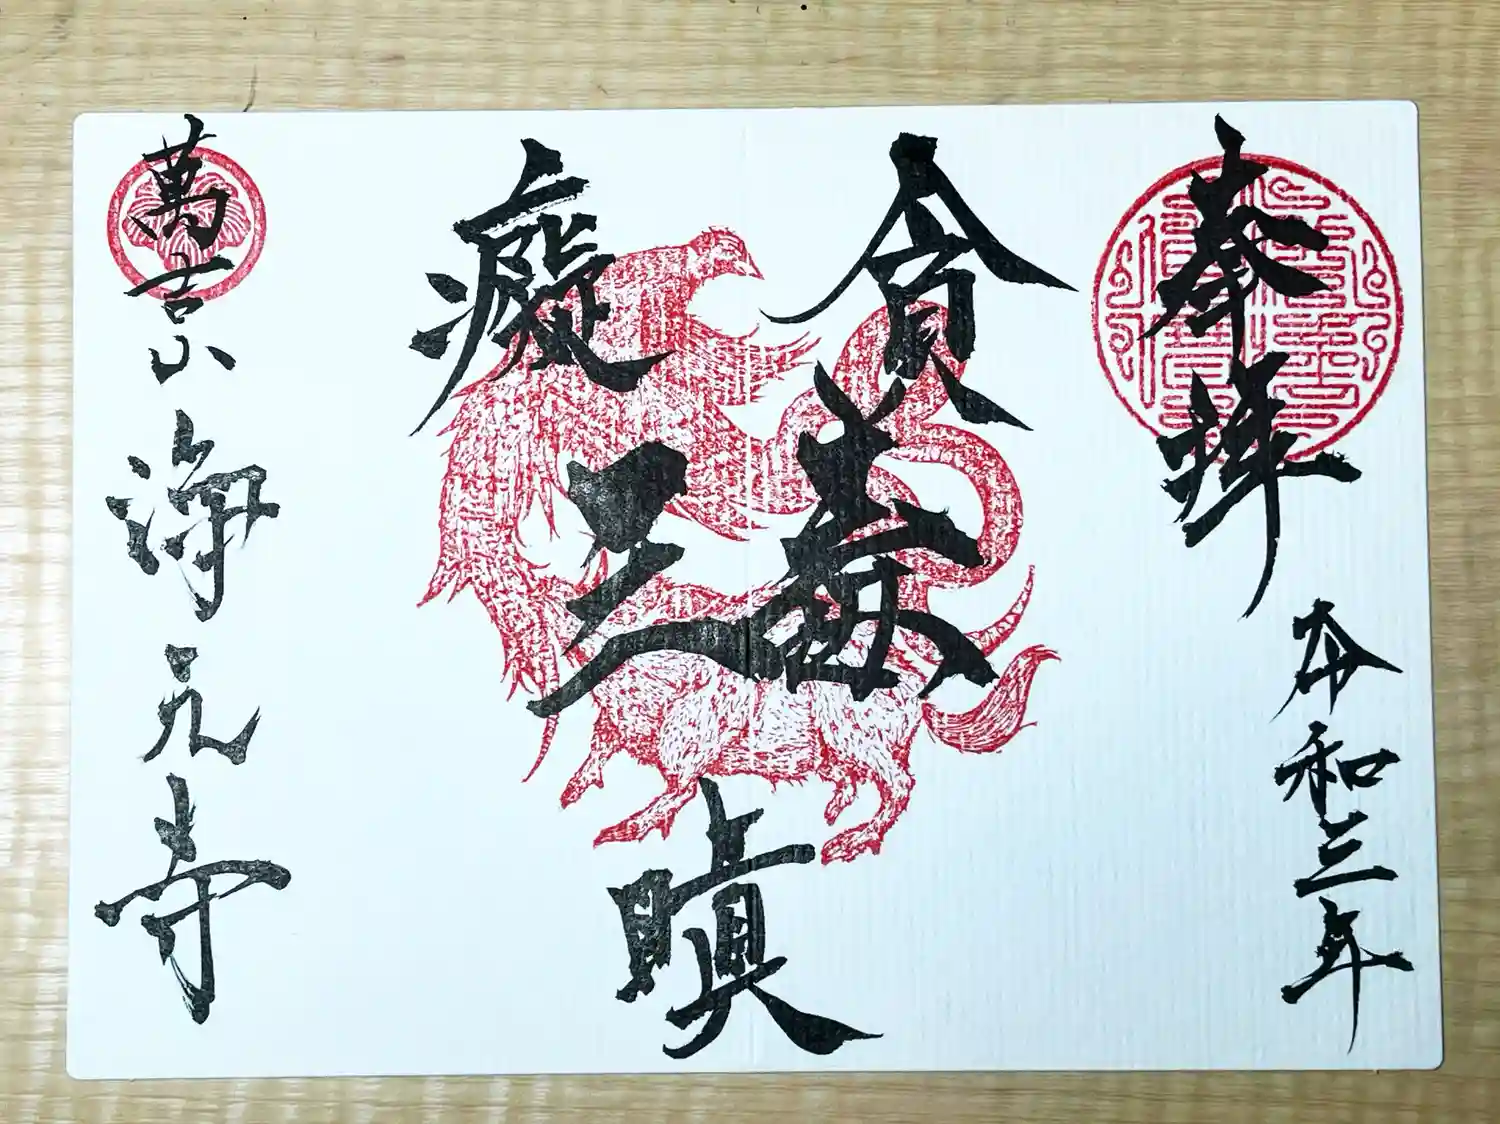 奉拝
令和三年
貪
癡
三毒
瞋
萬吉山
海元寺